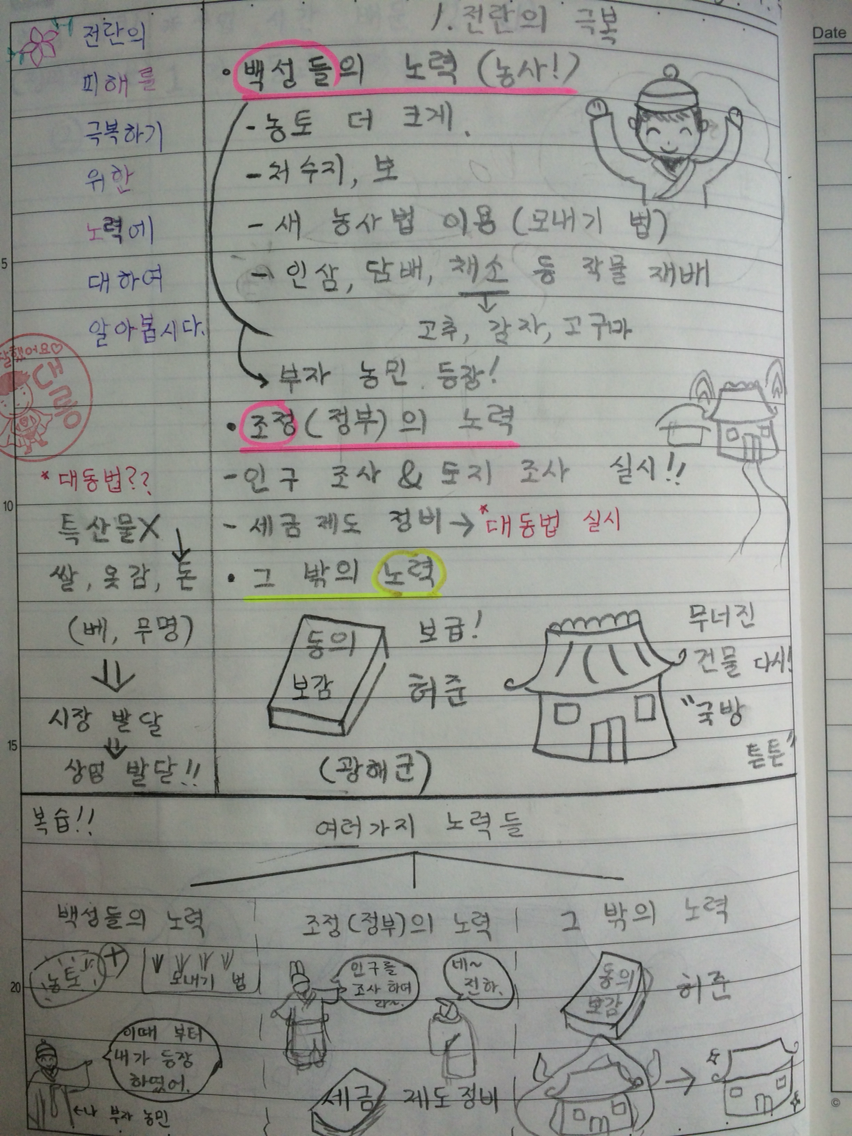 1. 전란의 극복
전란의
피해를
극복하기
위한
노력에
대하여
알아봅시다.
• 백성들의 노력 (농사!)
- 농토 더 크게.
- 저수지, 보
- 새 농사법 이용 (모내기 법)
- 인삼, 담배, 채소 등 작물 재배
↓
고추, 감자, 고구마
→ 부자 농민 등장!
• 조정(정부)의 노력
- 인구 조사 & 토지 조사 실시!!
- 세금 제도 정비 → *대동법 실시
*대동법??
특산물X
↓
쌀, 옷감, 돈
(베, 무명)
⇓
시장 발달
⇓
상업 발달!!
• 그 밖의 노력
동의
보감
보급!
허준
(광해군)
무너진
건물 다시!
"국방
튼튼"
복습!!
여러가지 노력들
백성들의 노력
농토 +
모내기 법
이때 부터
내가 등장
하였어.
←나 부자 농민
조정(정부)의 노력
인구를
조사 하여
라~.
네~
전하.
세금 제도정비
그 밖의 노력
동의
보감
허준
→
Date
5
10
15
20